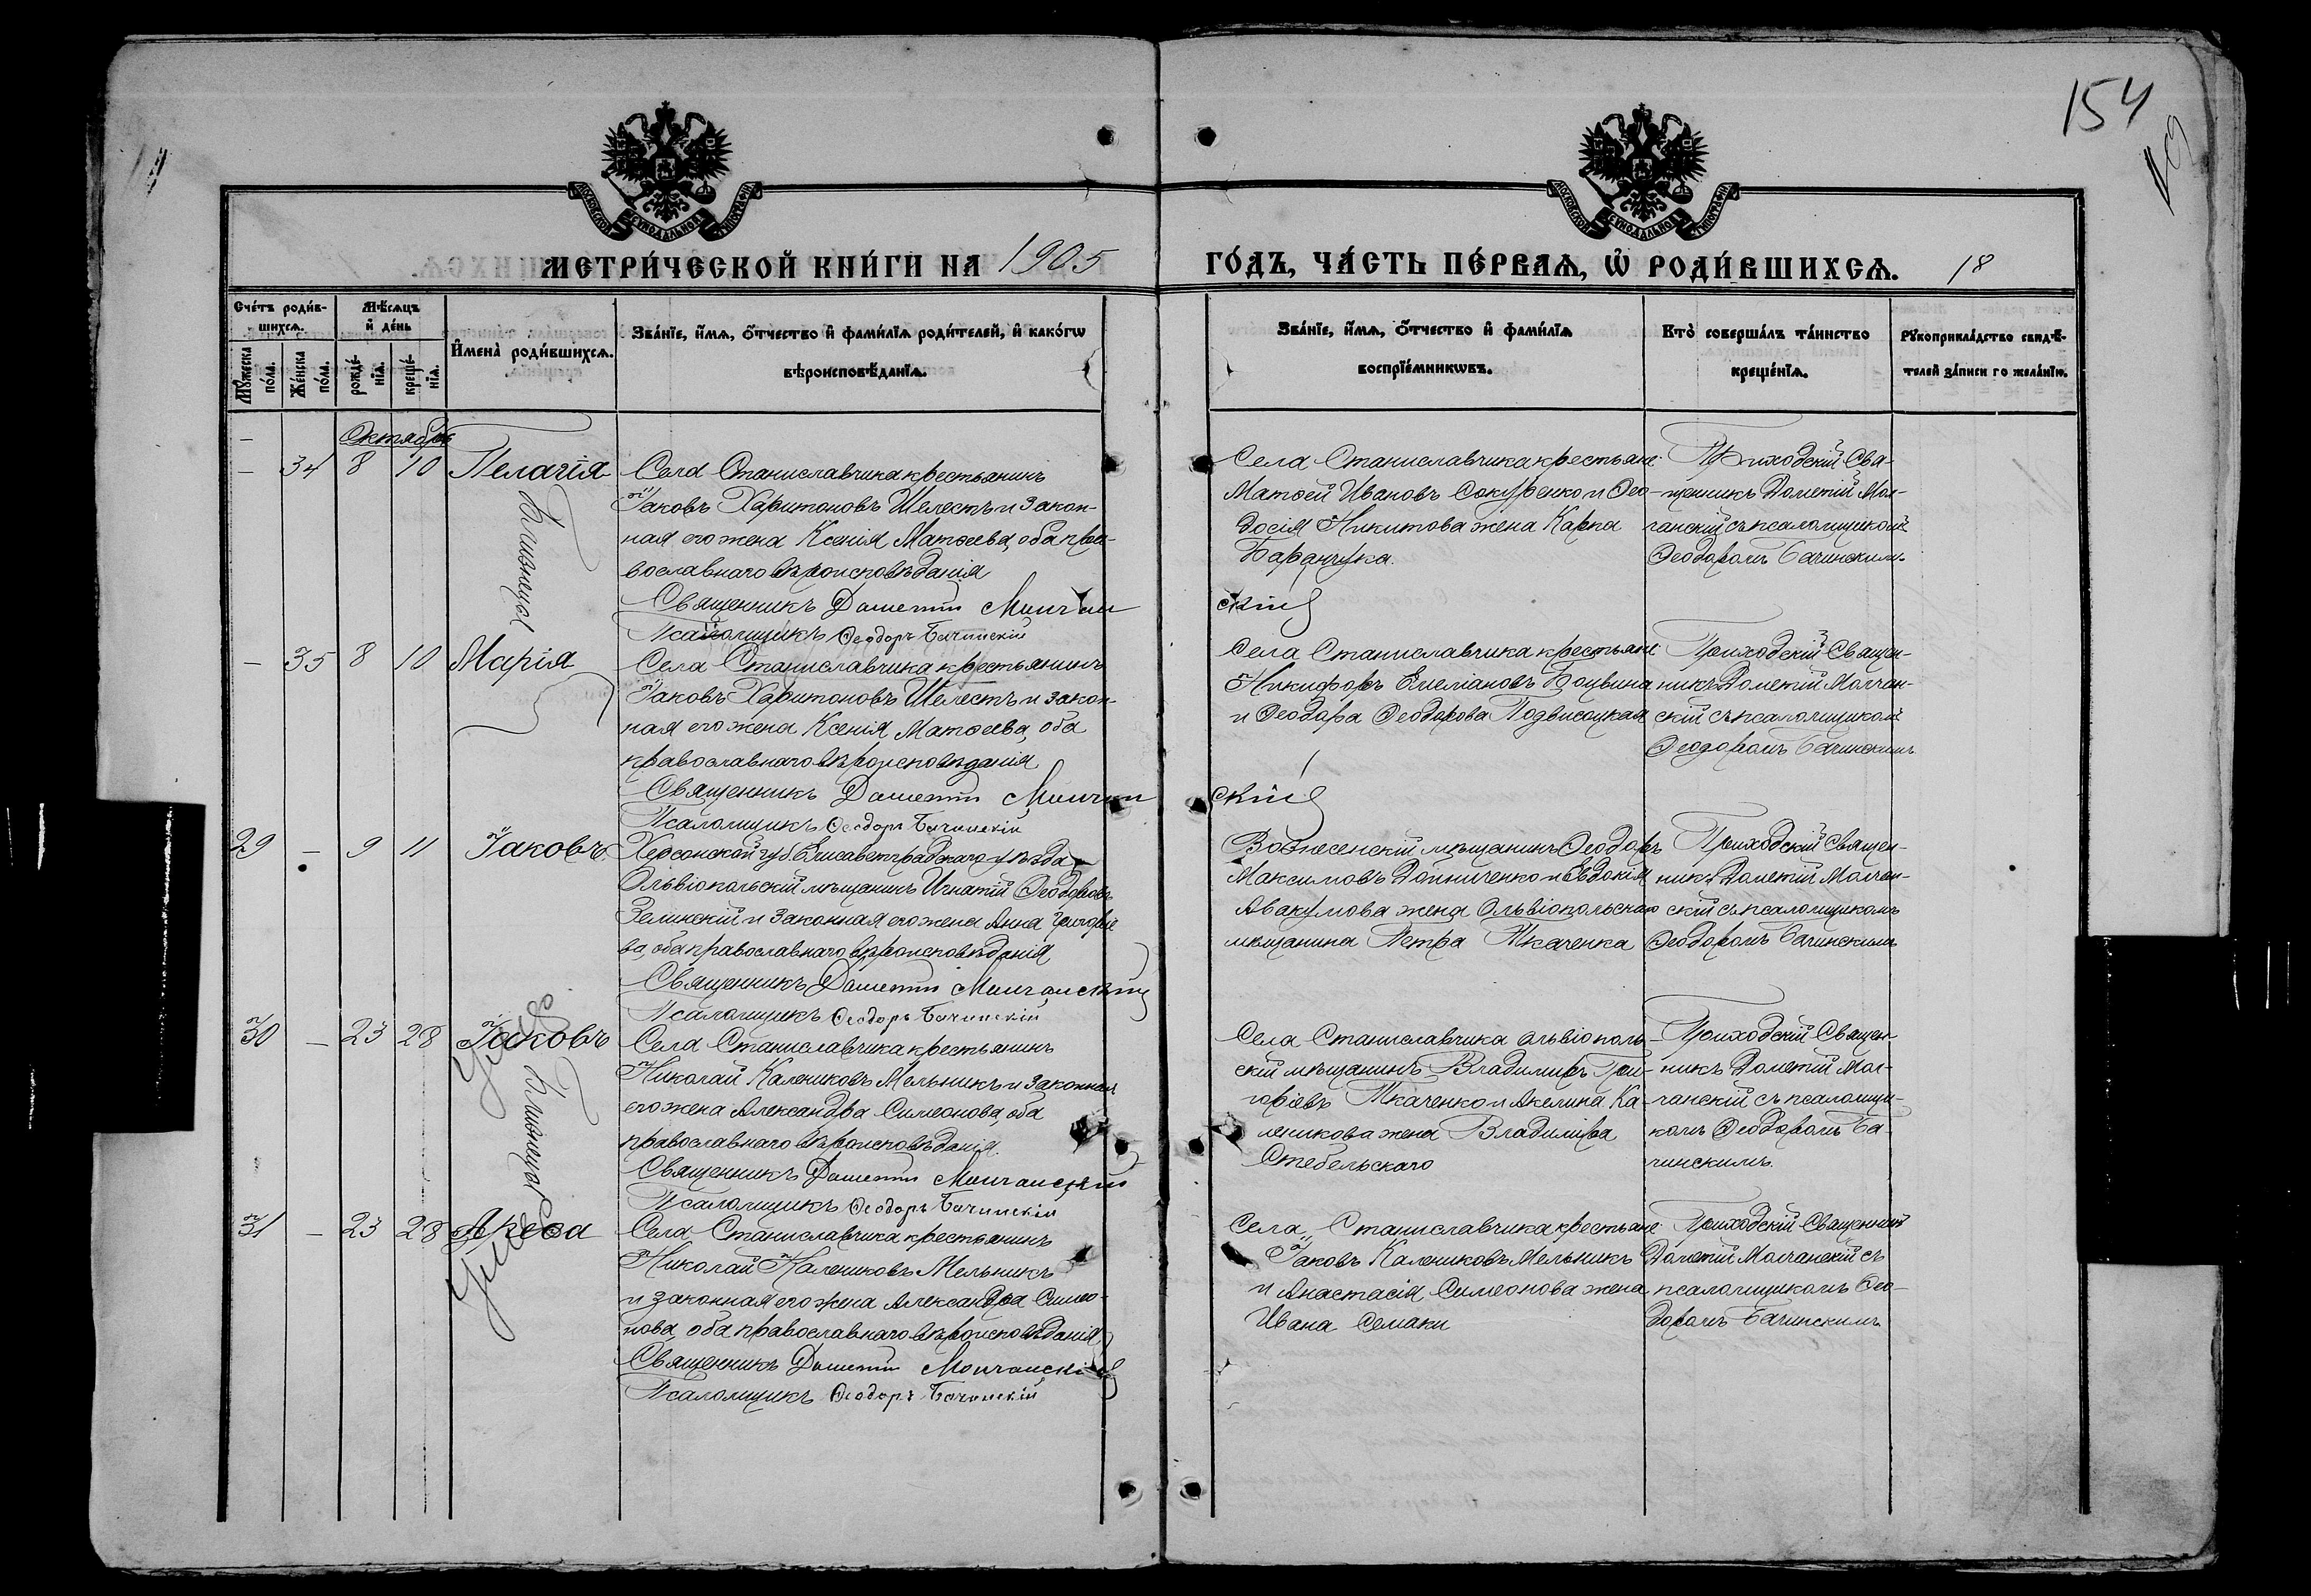 154
19
МОСКОВСКОЙ СѴНОДАЛЬНОЙ ТИПОГРАФІИ
МОСКОВСКОЙ СѴНОДАЛЬНОЙ ТИПОГРАФІИ
МЕТРИ́ЧЕСКОЙ КНИ́ГИ НА 1905
ГО́ДЪ, ЧА́СТЬ ПЕ́РВАѦ, Ѡ҆ РОДИ́ВШИХСѦ. 18
Сче́тъ роди́в-
шихсѧ.
Мѣ́сѧцъ
и҆ де́нь
Мꙋ́жеска
по́ла.
Же́нска
по́ла.
рожде́-
нїѧ.
креще́-
нїѧ.
И҆мена̀ роди́вшихсѧ.
Зва́нїе, и҆́мѧ, ѻ҆́тчество и҆ фами́лїѧ роди́телей, и҆ како́гѡ
вѣроисповѣ́данїѧ.
Зва́нїе, и҆́мѧ, ѻ҆́тчество и҆ фами́лїѧ
воспрїе́мникѡвъ.
Кто̀ соверша́лъ та́инство
креще́нїѧ.
Рꙋкоприкла́дство свидѣ́-
телей за́писи по жела́нїю.
Октябрь
— 34 8 10 Пелагія
Села Станиславчика крестьянинъ
Іаковъ Харитоновъ Шелестъ и закон-
ная его жена Ксенія Матѳеева, оба пра-
вославнаго вѣроисповѣданія
Священникъ Дометій Молчан
Псаломщикъ Ѳеодоръ Бачинскій
Близнецы
Села Станиславчика крестьяне:
Матѳей Ивановъ Сокуренко и Ѳео-
досія Никитова жена Карпа
Баранчука.
скій
Приходскій Свя-
щенникъ Дометій Мол-
чанскій съ псаломщикомъ
Ѳеодоромъ Бачинскимъ.
— 35 8 10 Марія
Села Станиславчика крестьянинъ
Іаковъ Харитоновъ Шелестъ и закон-
ная его жена Ксенія Матѳеева, оба
православнаго вѣроисповѣданія
Священникъ Дометій Молчан
Псаломщикъ Ѳеодоръ Бачинскій
Села Станиславчика крестьяне:
Никифоръ Емеліановъ Боцвина
и Ѳеодора Ѳеодорова Подвисоцкая
скій
Приходскій Священ-
никъ Дометій Молчан-
скій съ псаломщикомъ
Ѳеодоромъ Бачинскимъ
29 — 9 11 Іаковъ
Херсонской губ. Елисаветградскаго уѣзда
Ольвіопольскій мѣщанинъ Игнатій Ѳеодоровъ
Зелинскій и законная его жена Анна Григорье
ва, оба православнаго вѣроисповѣданія
Священникъ Дометій Молчанскій
Псаломщикъ Ѳеодоръ Бачинскій
Вознесенскій мѣщанинъ Ѳеодоръ
Максимовъ Дойниченко и Евдокія
Авакумова жена Ольвіопольскаго
мѣщанина Петра Ткаченка
Приходскій Священ-
никъ Дометій Молчан-
скій съ псаломщикомъ
Ѳеодоромъ Бачинскимъ
30 — 23 28 Іаковъ
Села Станиславчика крестьянинъ
Николай Калениковъ Мельникъ и законная
его жена Александра Симеонова, оба
православнаго вѣроисповѣданія.
Священникъ Дометій Молчанскій
Псаломщикъ Ѳеодоръ Бачинскій
Близнецы
Села Станиславчика ольвіополь-
скій мѣщанинъ Владимиръ Гри-
горіевъ Ткаченко и Акелина Ка-
леникова жена Владимира
Стебельскаго
Приходскій Священ-
никъ Дометій Мол-
чанскій съ псаломщи-
комъ Ѳеодоромъ Ба-
чинскимъ.
31 — 23 28 Ареѳа
Села Станиславчика крестьянинъ
Николай Калениковъ Мельникъ
и законная его жена Александра Симео-
нова, оба православнаго вѣроисповѣданія
Священникъ Дометій Молчанскій
Псаломщикъ Ѳеодоръ Бачинскій
Села Станиславчика крестьяне:
Іаковъ Калениковъ Мельникъ
и Анастасія Симеонова жена
Ивана Семаки
Приходскій Священникъ
Дометій Молчанскій съ
псаломщикомъ Ѳео-
доромъ Бачинскимъ